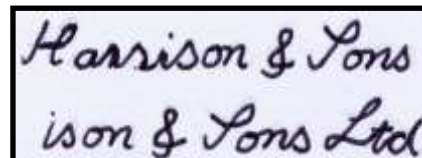 Harrison & Sons
ison & Sons Ltd